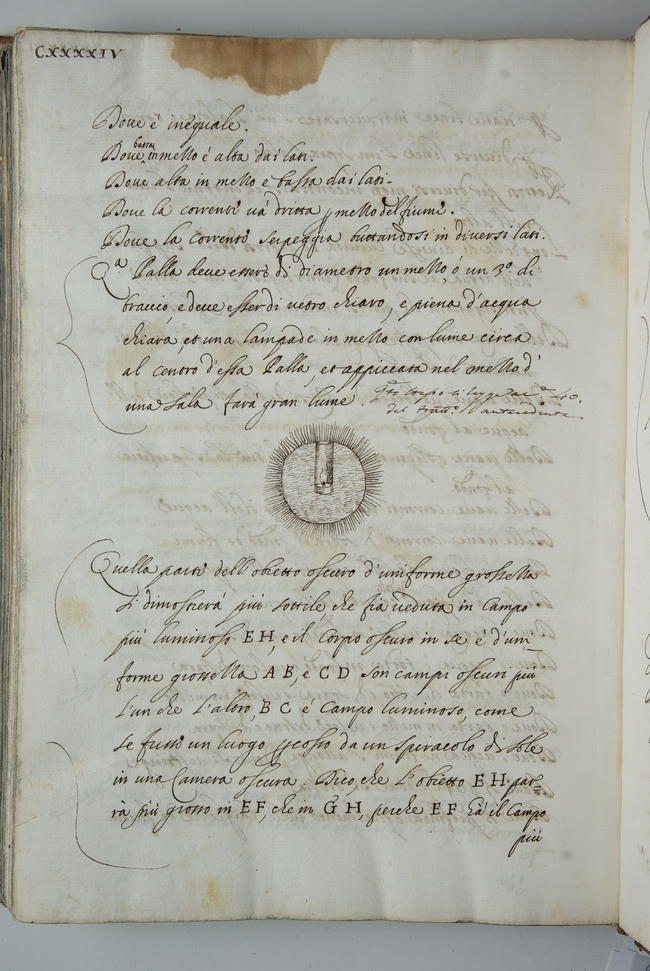 CXXXXIV
Doue é inequale.
Doue bassa in mezzo é alta dai lati.
Doue alta in mezzo e bassa dai lati.
Doue la corrente uà dritta p mezzo del fiume.
Doue la corrente serpeggia buttandosi in diuersi lati.
Qª Palla deue essere di diametro un mezzo, ó un 3º di
braccio, e deue esser di uetro chiaro, e piena d'acqua
chiara, et una lampade in mezzo con lume circa
al centro d'essa Palla, et appiccata nel mezzo d'
una sala farà gran lume.
si legge 40.
del antecedente
Quella parte dell'obietto oscuro d'uniforme grossezza
si dimostrerá piú sottile, che fia ueduta in Campo
piú luminoso EH, e il Corpo oscuro in se é d'uni-
forme grossezza AB, e CD son campi oscuri piú
l'un che l'altro, BC é Campo luminoso, come
se fusse un luogo pcosso da un spiracolo di sole
in una Camera oscura. Dico, che l'obietto EH par-
rà piú grosso in EF, che in GH, perche EF há il Campo
piú